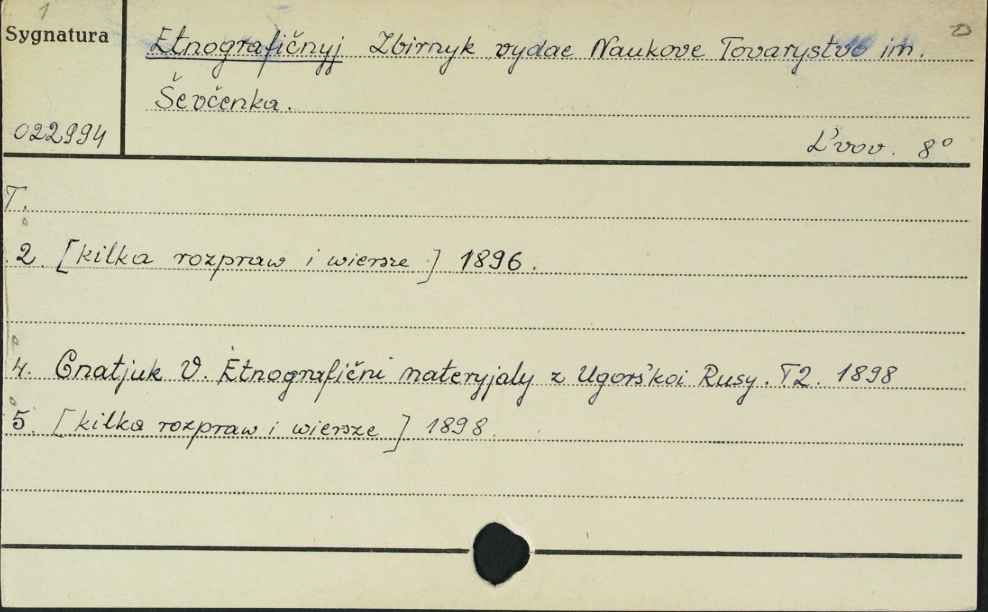 1
Sygnatura
Etnografičnyj Zbirnyk vydae Naukove Tovarystvo im.
Ševčenka.
022994
L'vov. 8°
T.
2. [kilka rozpraw i wiersze] 1896.
4. Gnatjuk V. Etnografični materyjaly z Ugorśkoi Rusy. T2. 1898
5. [kilka rozpraw i wiersze] 1898.